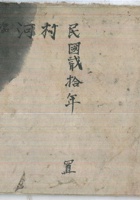 民國貳拾年 置
村河